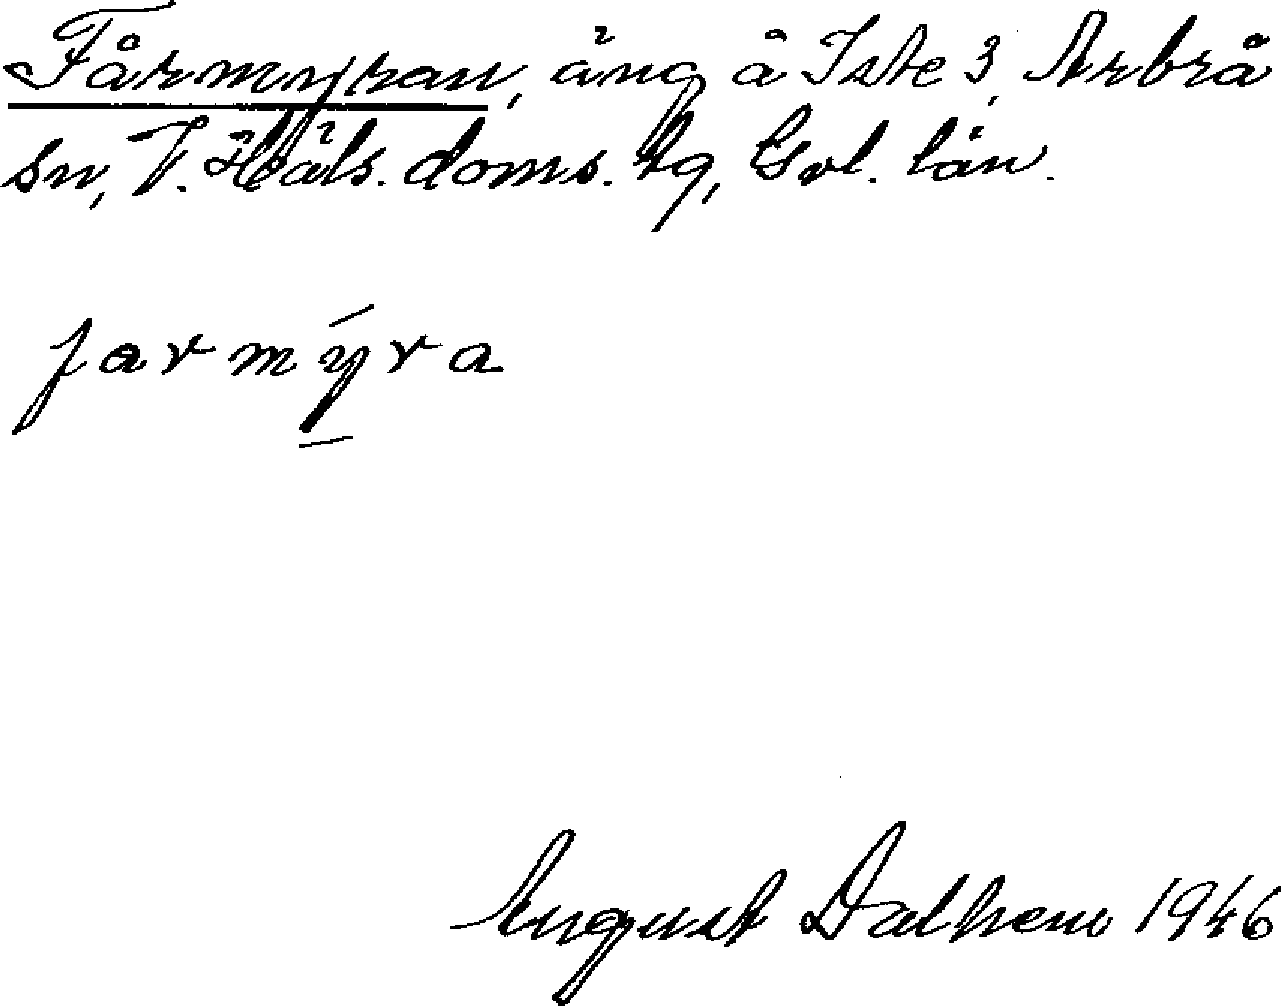 Fårmyran, äng å Iste 3, Arbrå
sn, V. Häls. doms. tg, Gvl. län.
farmýra
August Dalhem 1946